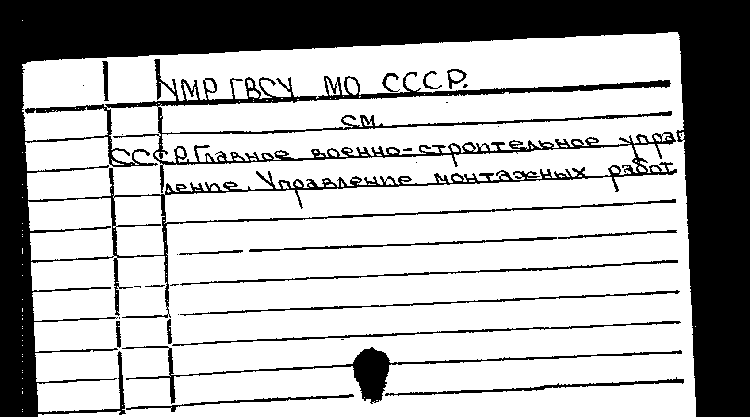 УМР ГВСУ МО СССР.
см.
СССР. Главное военно-строительное управ
ление. Управление монтажных работ